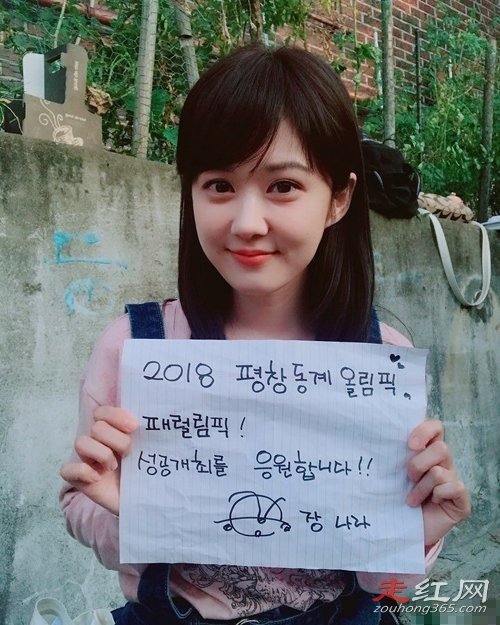 2018 평창동계 올림픽,
패럴림픽!
성공개최를 응원합니다!!
장 나라
走红网
zouhong365.com